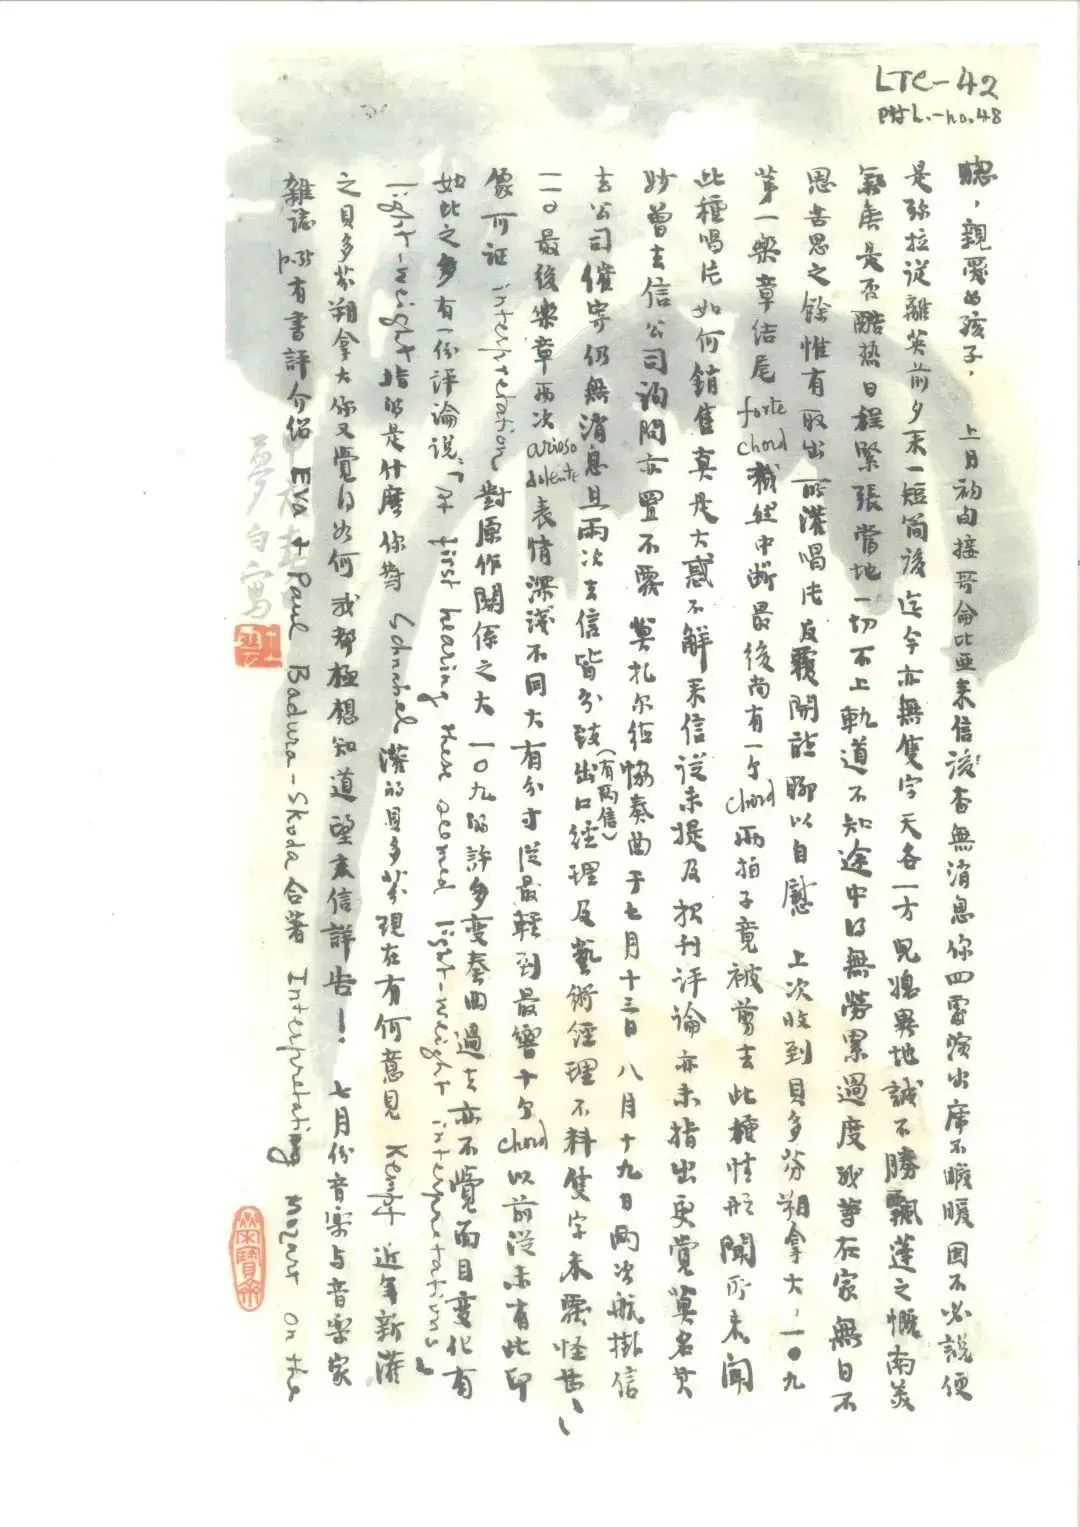 LTC-42
附L.-no.48
聰，親愛的孩子，上月初旬接哥侖比亞來信後杳無消息你四處演出席不暇暖固不必說便
是彌拉從離英前夕來一短簡後迄今亦無隻字天各一方兒媳異地誠不勝飄蓬之慨南美
氣候是否酷热日程緊張當地一切不上軌道不知途中得無勞累過度我等在家無日不
思苦思之餘惟有取出所灌唱片反覆開聽聊以自慰 上次收到貝多芬朔拿大，一〇九
第一樂章結尾 forte chord 截然中斷最後尚有一个 chord 兩拍子竟被剪去此種情形聞所未聞
此種唱片如何銷售真是大惑不解來信從未提及報刊評論亦未指出更覺莫名其
妙曾去信公司詢問亦置不覆 莫扎尔德協奏曲于七月十三日八月十九日兩次航掛信
（有兩信）
去公司催寄仍無消息且兩次去信皆分致出口經理及藝術經理不料隻字未覆怪甚、、
一一〇最後樂章兩次 arioso dolente 表情深淺不同大有分寸從最輕到最響十个 chord 以前從未有此印
象可证 interpretation 對原作關係之大 一〇九的許多变奏曲過去亦不覺面目变化有
如此之多有一份評論说「At first hearing there seemed light-weight interpretations」
light-weight 指的是什麽你對 Schnabel 灌的貝多芬現在有何意見 Kempf 近年新灌
之貝多芬朔拿大你又覺得如何我都極想知道望來信詳告！七月份音樂与音樂家
雜誌P.35有書評介绍 Eva & Paul Badura-Skoda 合著 Interpretating Mozart on the
夢白寫
榮寶齋